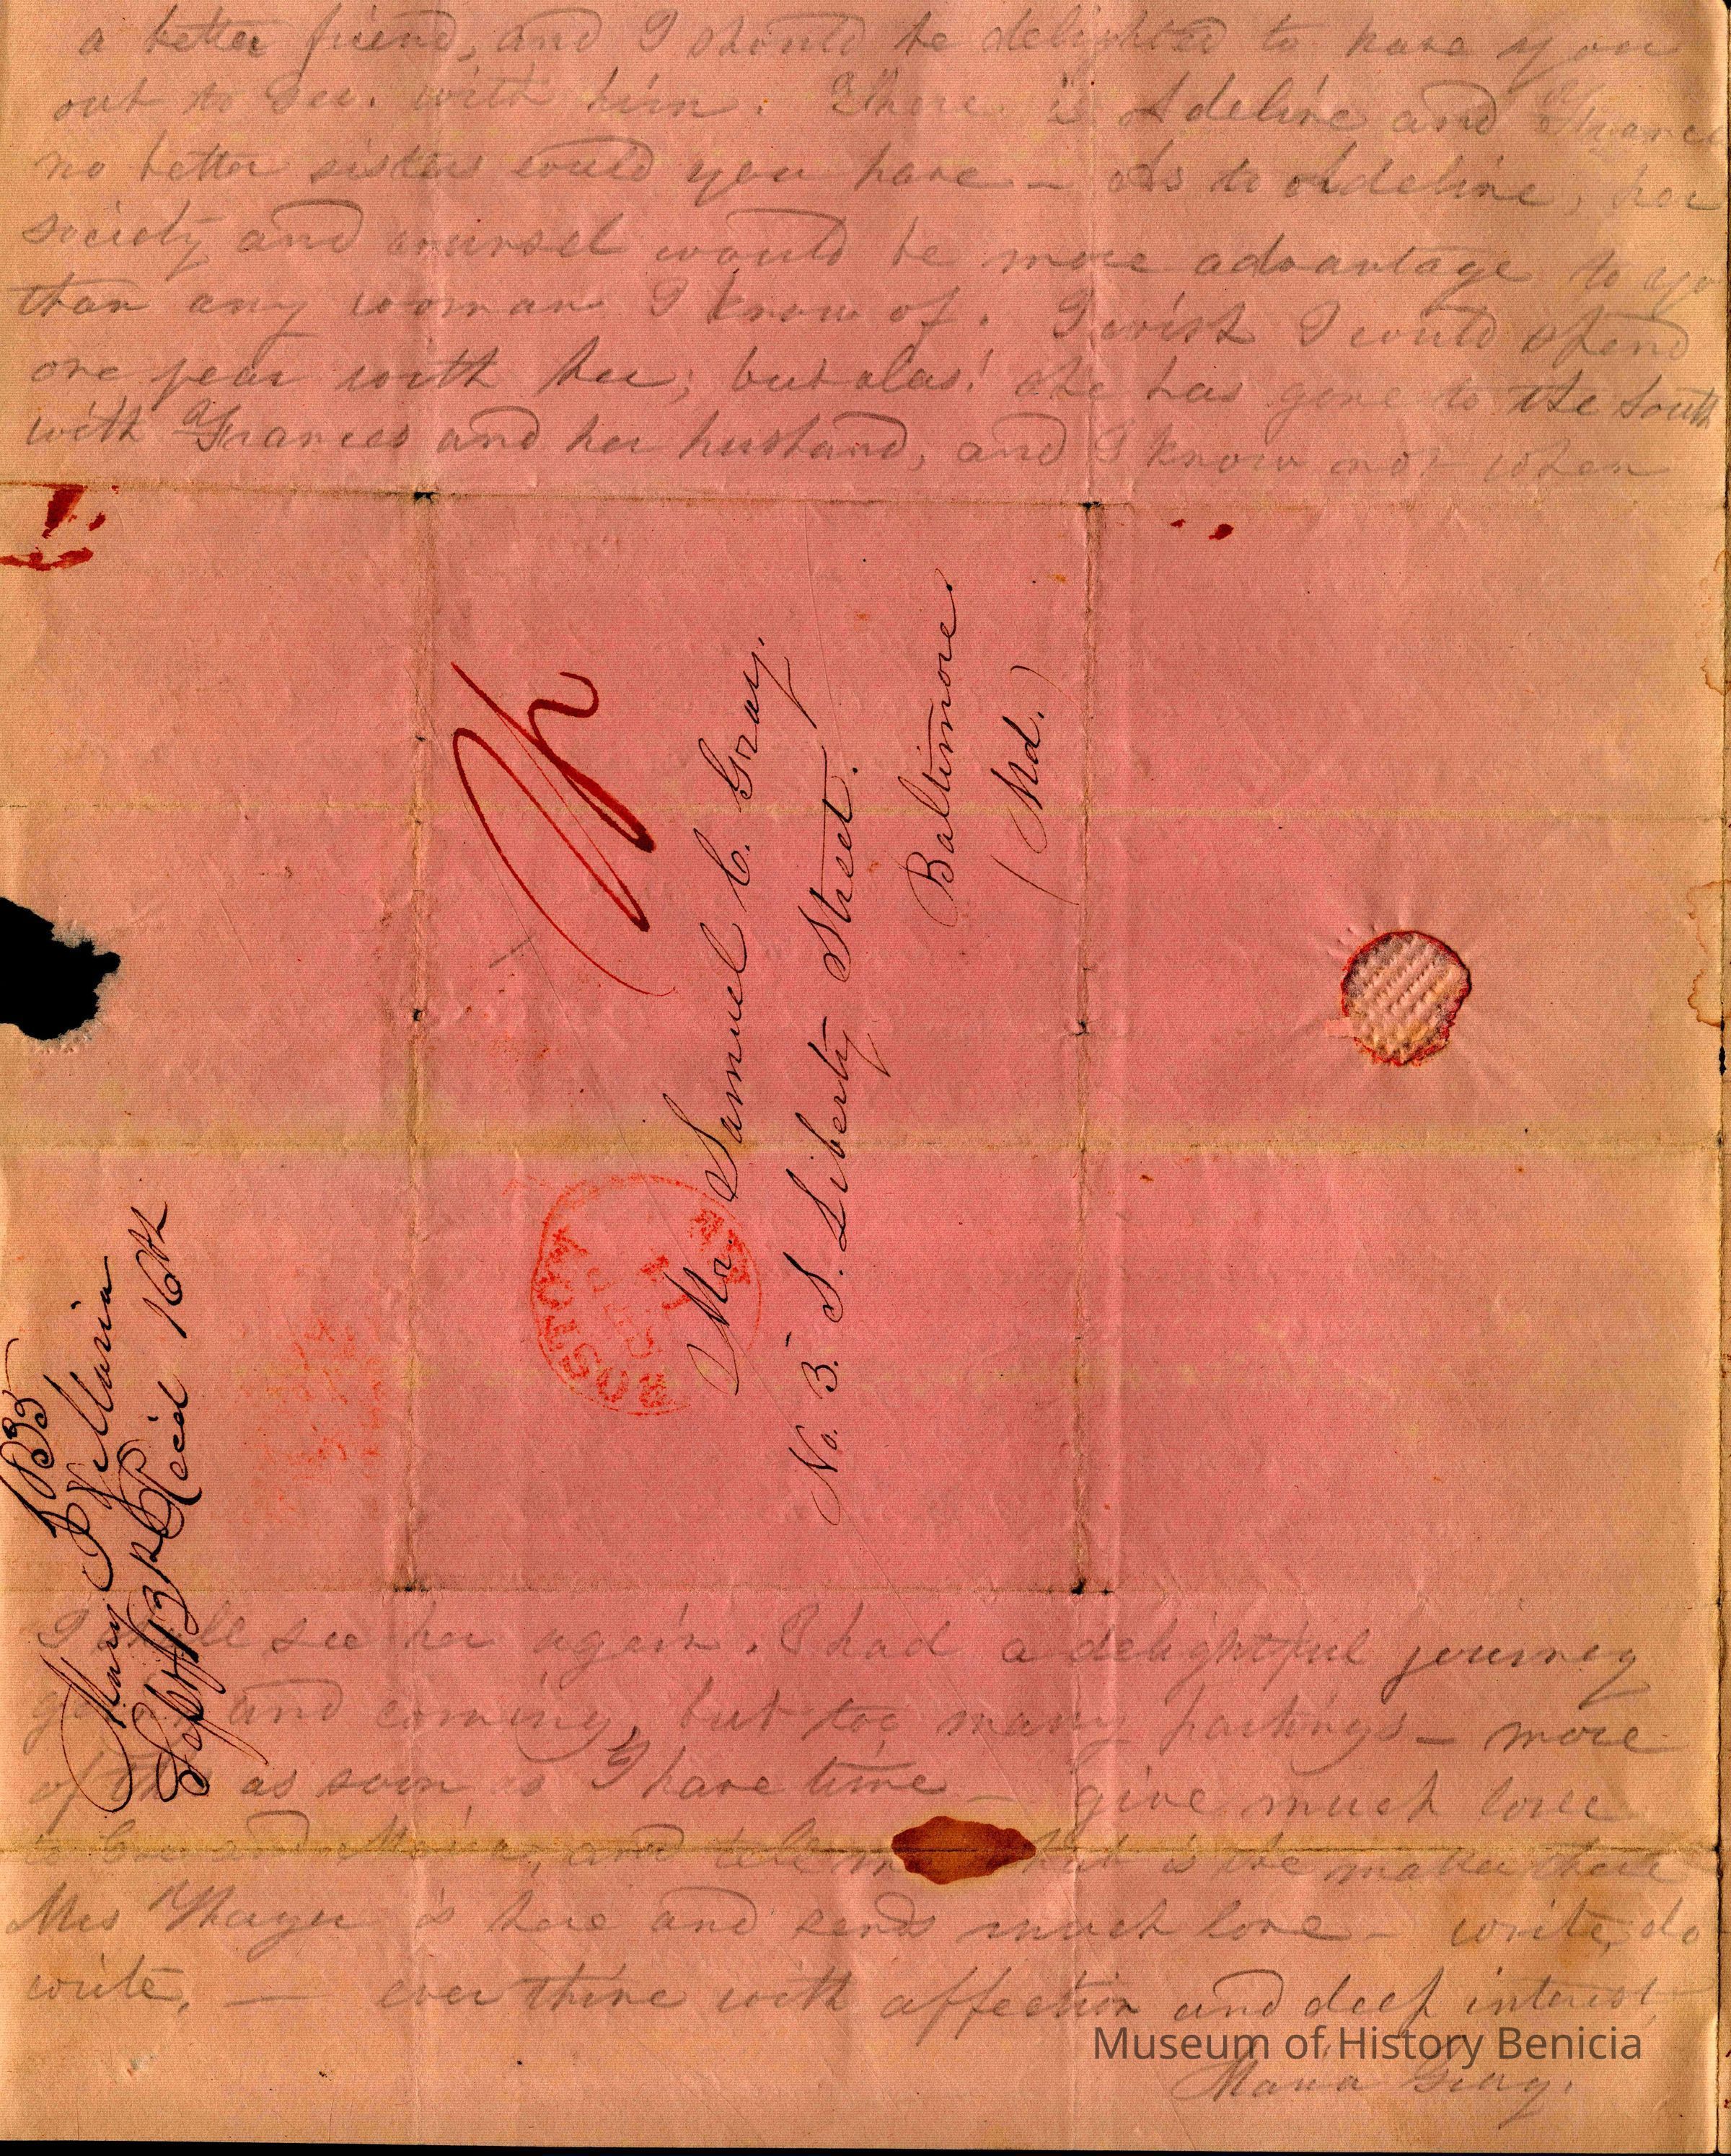 a better friend, and I should be delighted to have you
out to See. with him. There is Adeline and Frances
no better sisters could you have — As to Adeline, her
society and counsel would be more advantage to yo
than any woman I know of. I wish I could spend
one year with her; but alas! she has gone to the South
with Frances and her husband, and I know not when
Mr. Samuel C. Gray.
No. 3. S. Liberty Street.
Baltimore
(Md.)
BOSTON
1835
Mary Maria
Sept 13th Recd 16th
I shall see her again. I had a delightful journey
going and coming, but too many partings — more
of this as soon as I have time — give much love
to and and tell me what is the matter there
Mrs Thayer is here and sends much love — write, do
write, — ever thine with affection and deep interest,
Maria Gray.
Museum of History Benicia